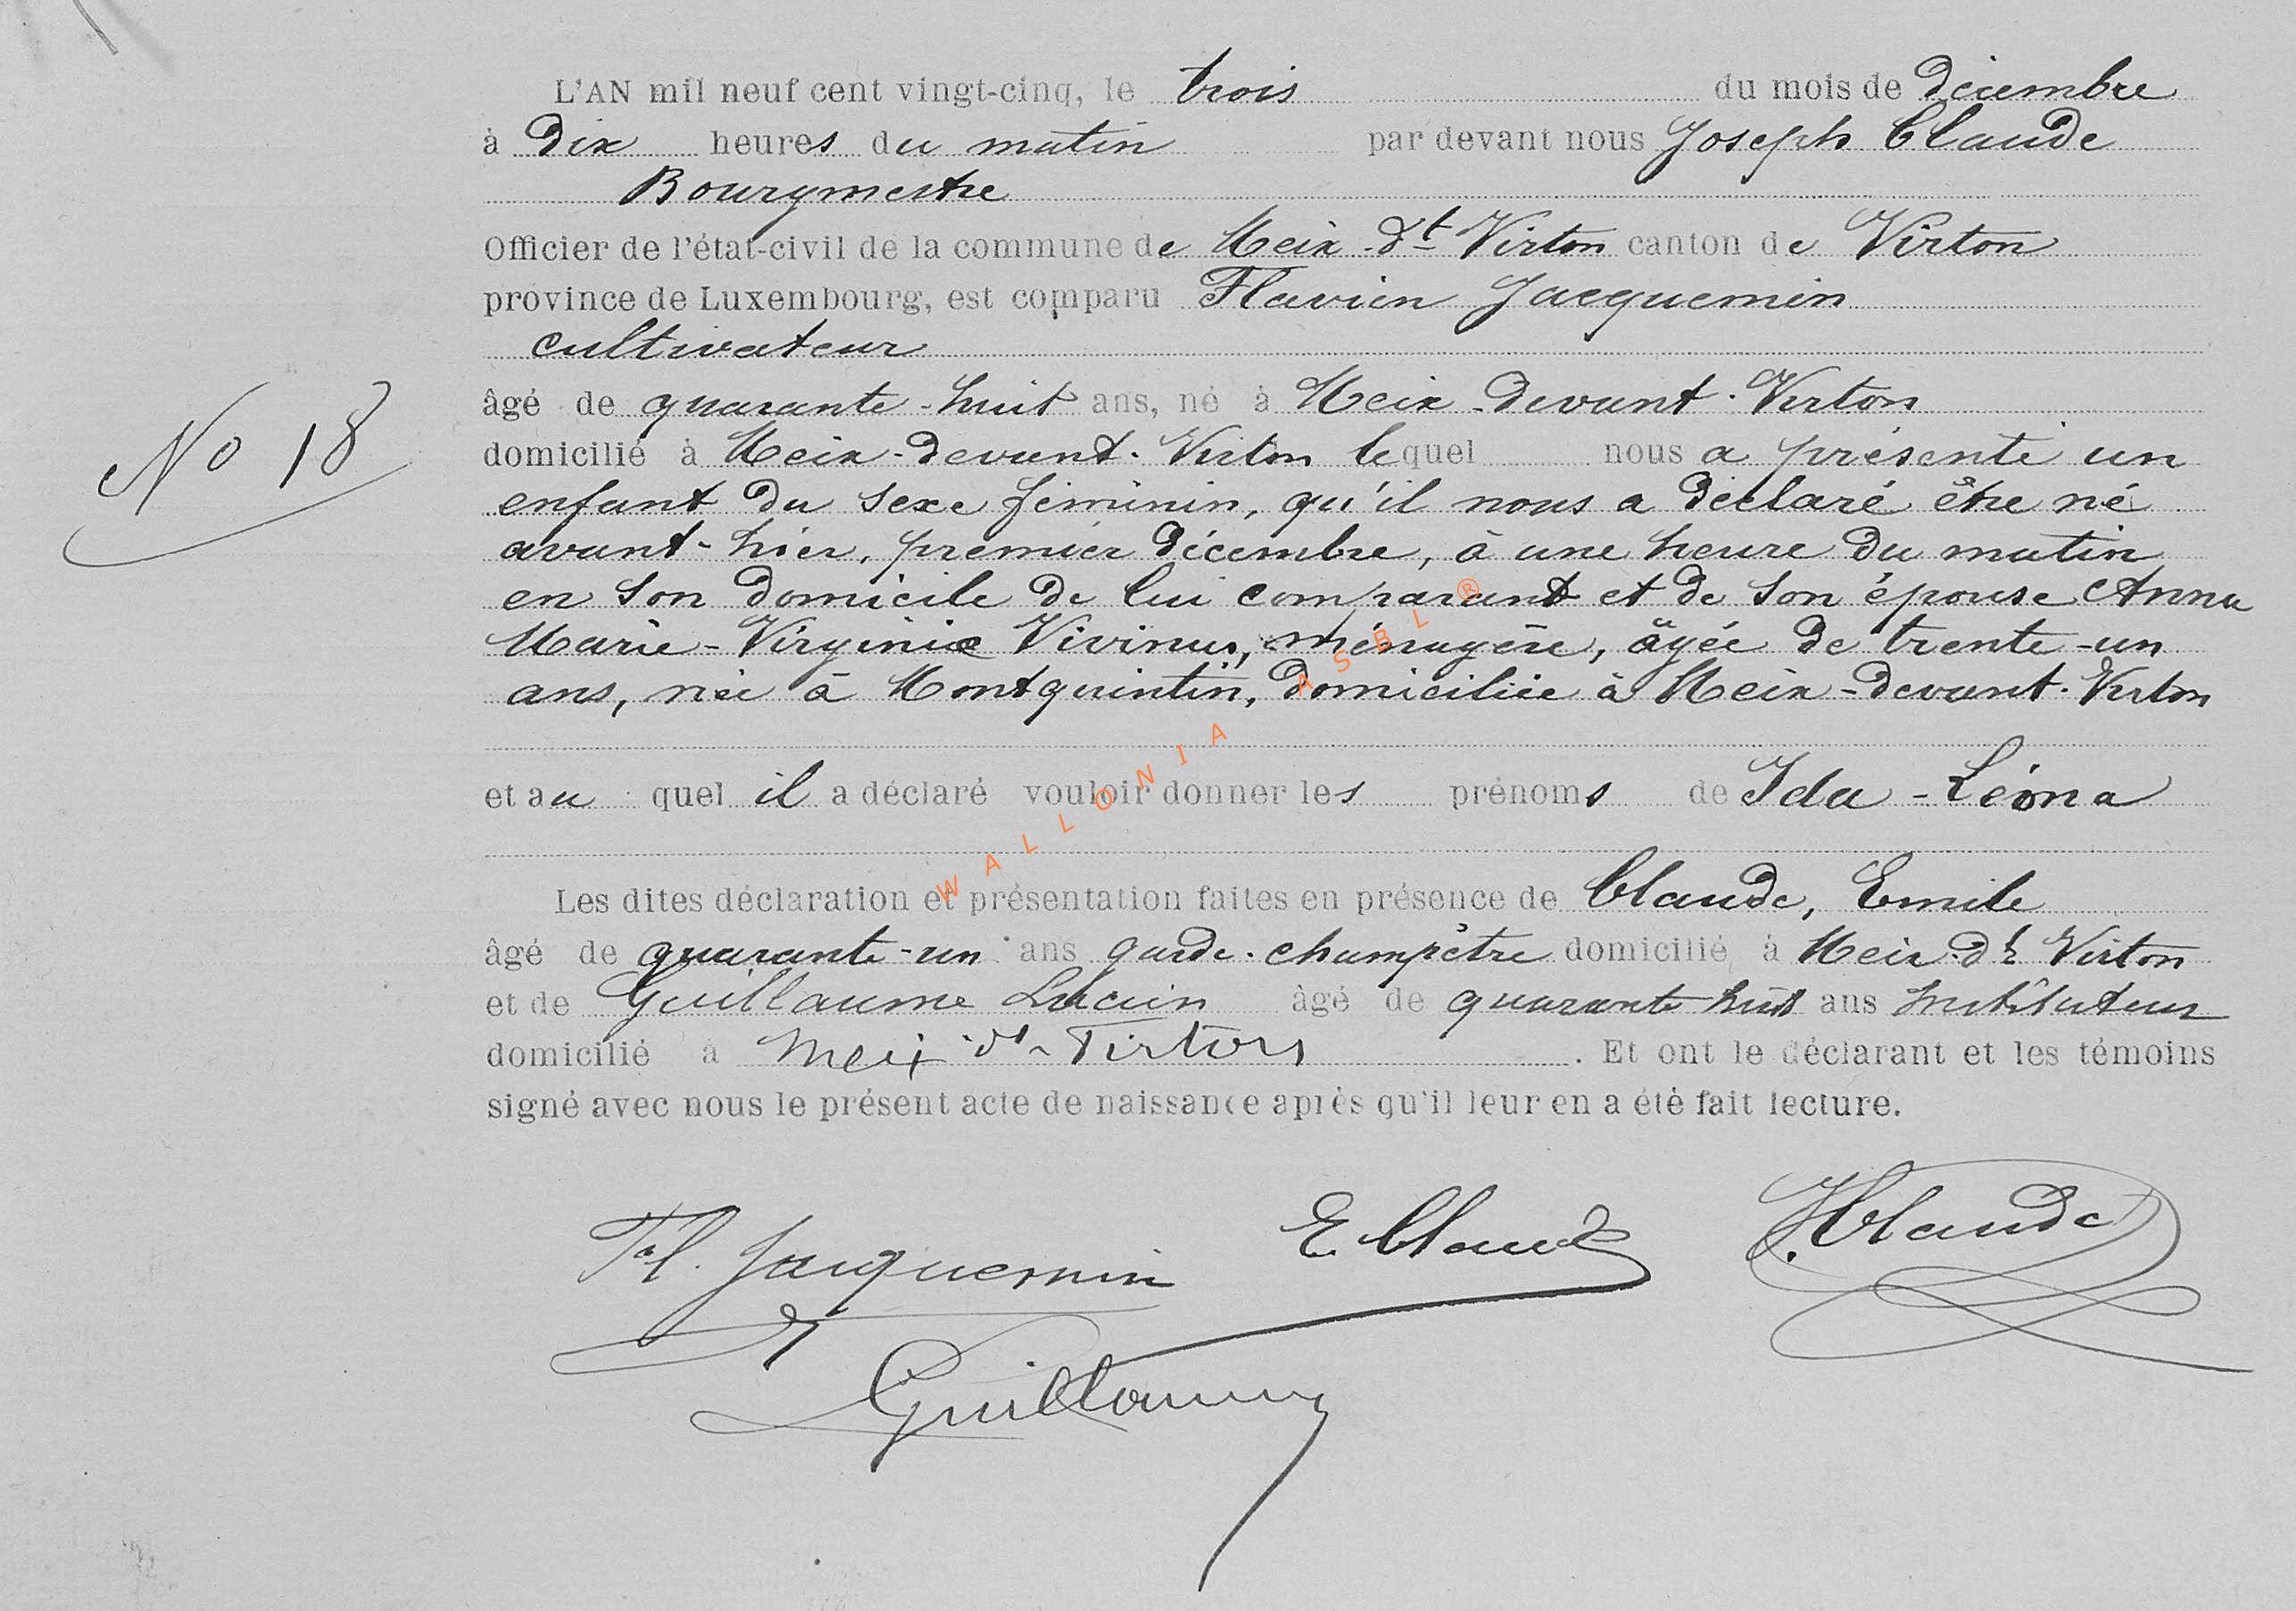 L'AN mil neuf cent vingt-cinq, le trois du mois de décembre
à dix heures du matin par devant nous Joseph Claude
Bourgmestre
Officier de l'état-civil de la commune de Meix-dt Virton canton de Virton
province de Luxembourg, est comparu Flavien Jacquemin
cultivateur
âgé de quarante-huit ans, né à Meix-devant-Virton
No 18
domicilié à Meix-devant-Virton lequel nous a présenté un
enfant du sexe féminin, qu'il nous a déclaré être né
avant-hier, premier décembre, à une heure du matin
en son domicile de lui comparant et de son épouse Anna
Marie-Virginie Vivinus, ménagère, âgée de trente-un
ans, née à Montquintin, domiciliée à Meix-devant-Virton
et au quel il a déclaré vouloir donner les prénoms de Ida-Léona
Les dites déclaration et présentation faites en présence de Claude, Emile
âgé de quarante-un ans garde-champêtre domicilié à Meix-dt Virton
et de Guillaume Lucien âgé de quarante huit ans instituteur
domicilié à Meix-dt-Virton. Et ont le déclarant et les témoins
signé avec nous le présent acte de naissance après qu'il leur en a été fait lecture.
Fl. Jacquemin E. Claude J. Claude
Guillaume
WALLONIA ASBL ®